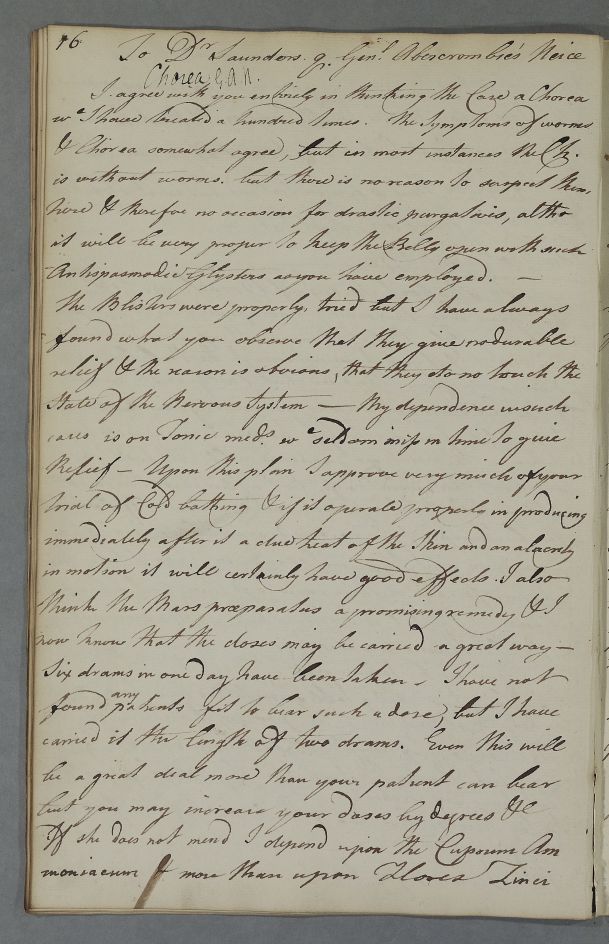 46
To Dr Saunders. q. Genl. Abercrombie's Neice
Chorea G.A.N.
I agree with you entirely in thinking the Case a Chorea
wc I have treated a hundred times. The Symptoms of worms
& Chorea somewhat agree, but in most instances the Ch.
is without worms. but there is no reason to suspect them
here & therefore no occasion for drastic purgatives, altho
it will be very proper to keep the Belly open with such
Antispasmodic Glysters as you have employed. —
The Blisters were properly tried but I have always
found what you observe that they give no durable
relief & the reason is obvious, that they do no touch the
State of the Nervous System — My dependence in such
cases is on Tonic meds. wc seldom miss in time to give
Relief — Upon this plan I approve very much of your
trial of Cold bathing & if it operate properly in producing
immediately after it a due heat of the Skin and an alacrity
in motion it will certainly have good effects. I also
think the Mars præparatus a promising remedy & I
now know that the doses may be carried a great way —
Six drams in one day have been taken — I have not
found any patients fit to bear such a dose, but I have
carried it the length of two drams. Even this will
be a great deal more than your patient can bear
but you may increase your doses by degrees &c
If she does not mend I depend upon the Cuprum Am
moniacum & more than upon Flores Zinci